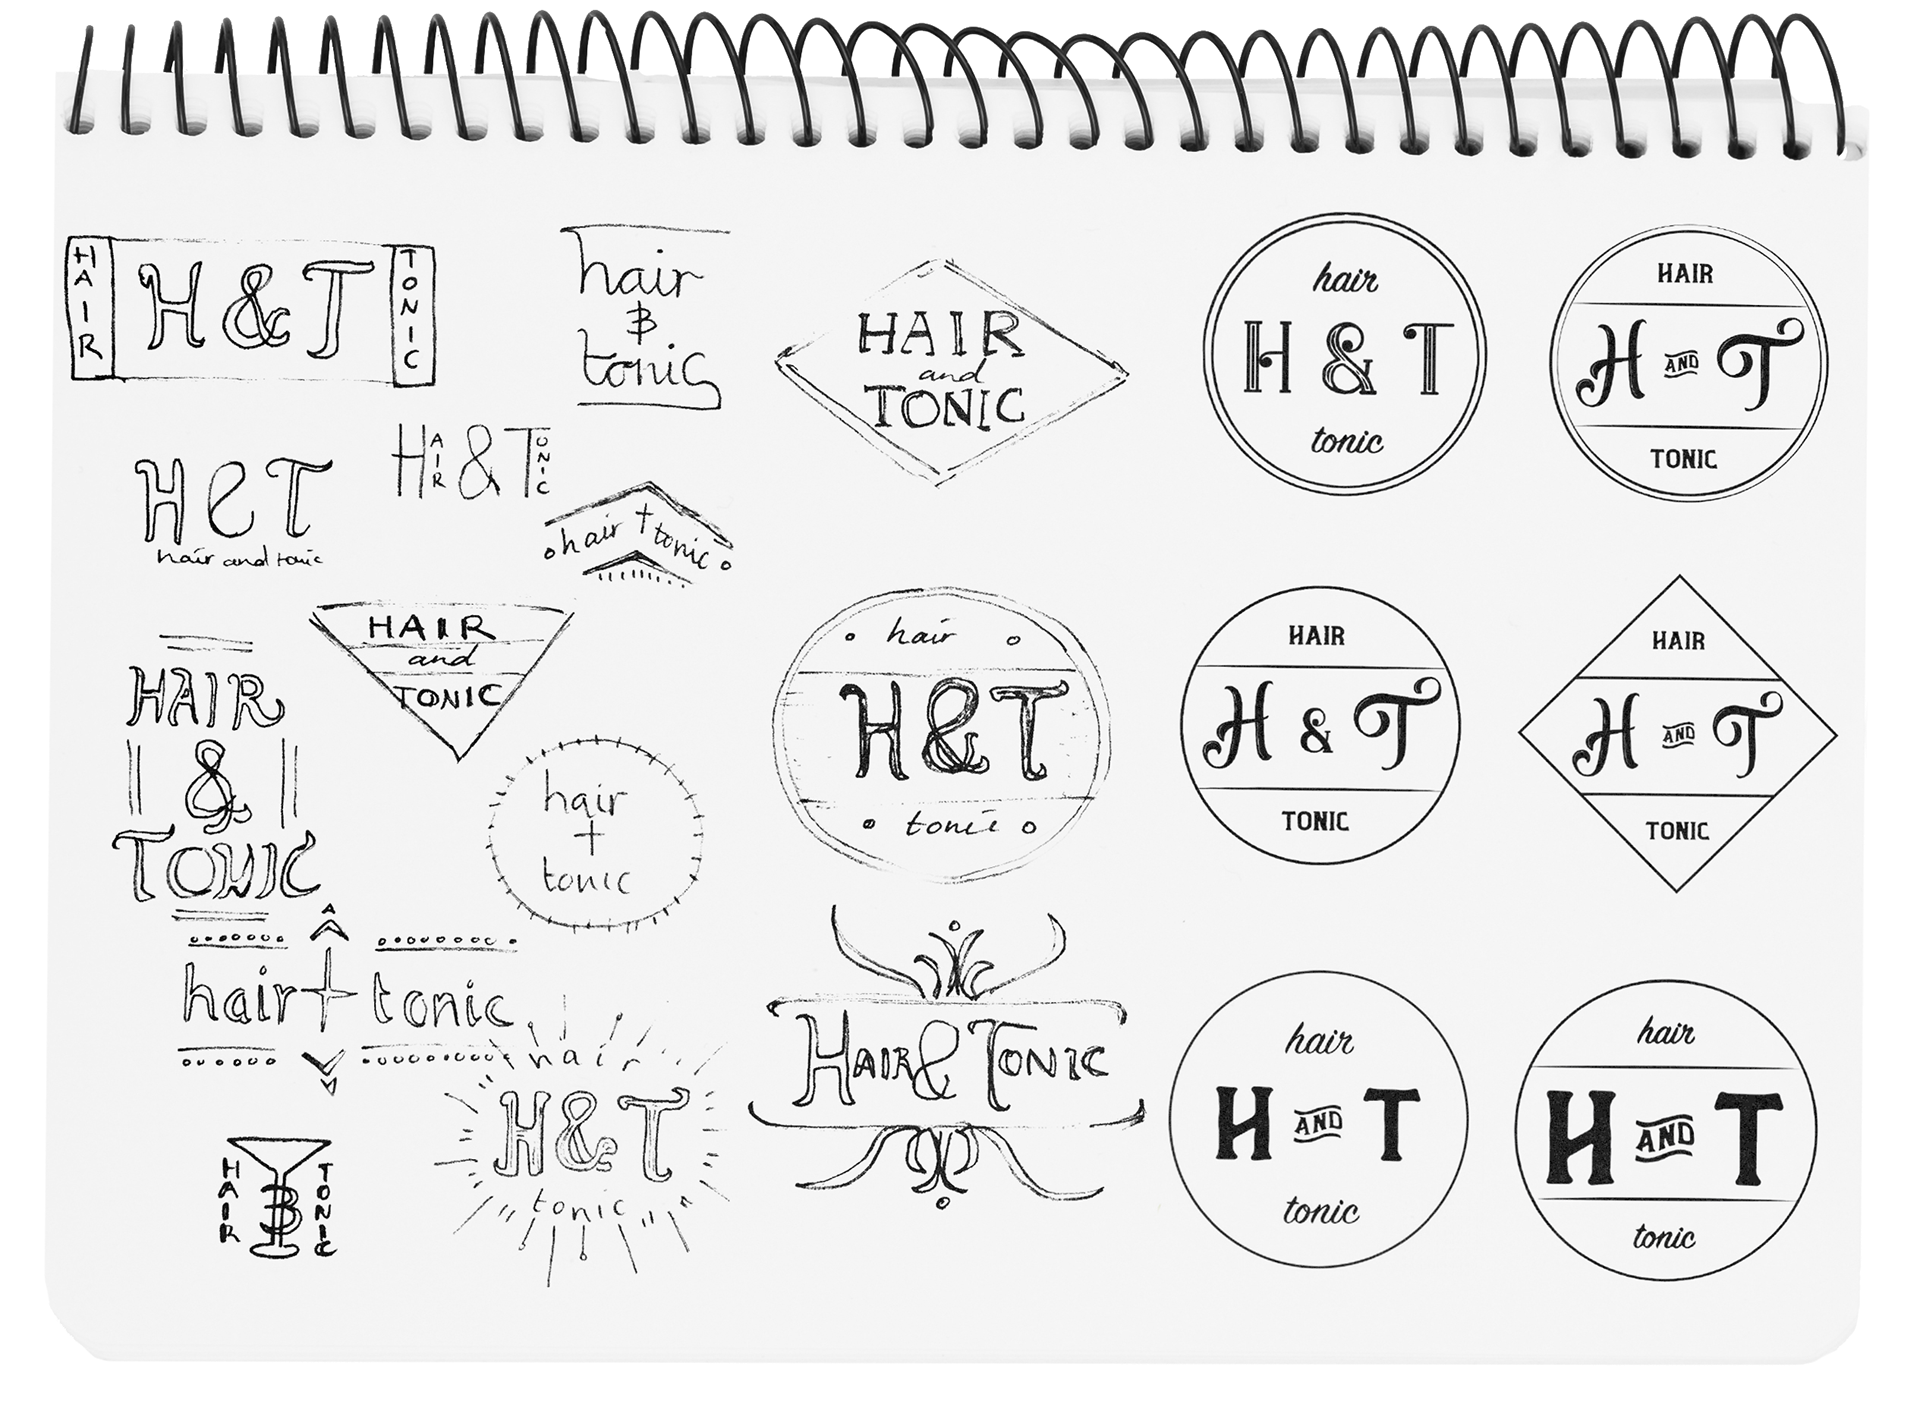 HAIR
H & T
TONIC
hair
&
tonic
HAIR
and
TONIC
hair
H & T
tonic
HAIR
H AND T
TONIC
H & T
hair and tonic
HAIR & TONIC
hair + tonic
HAIR
&
TONIC
HAIR
and
TONIC
hair
+
tonic
hair
H & T
tonic
HAIR
H & T
TONIC
HAIR
H AND T
TONIC
hair + tonic
HAIR
TONIC
hair
H & T
tonic
HAIR & TONIC
hair
H AND T
tonic
hair
H AND T
tonic